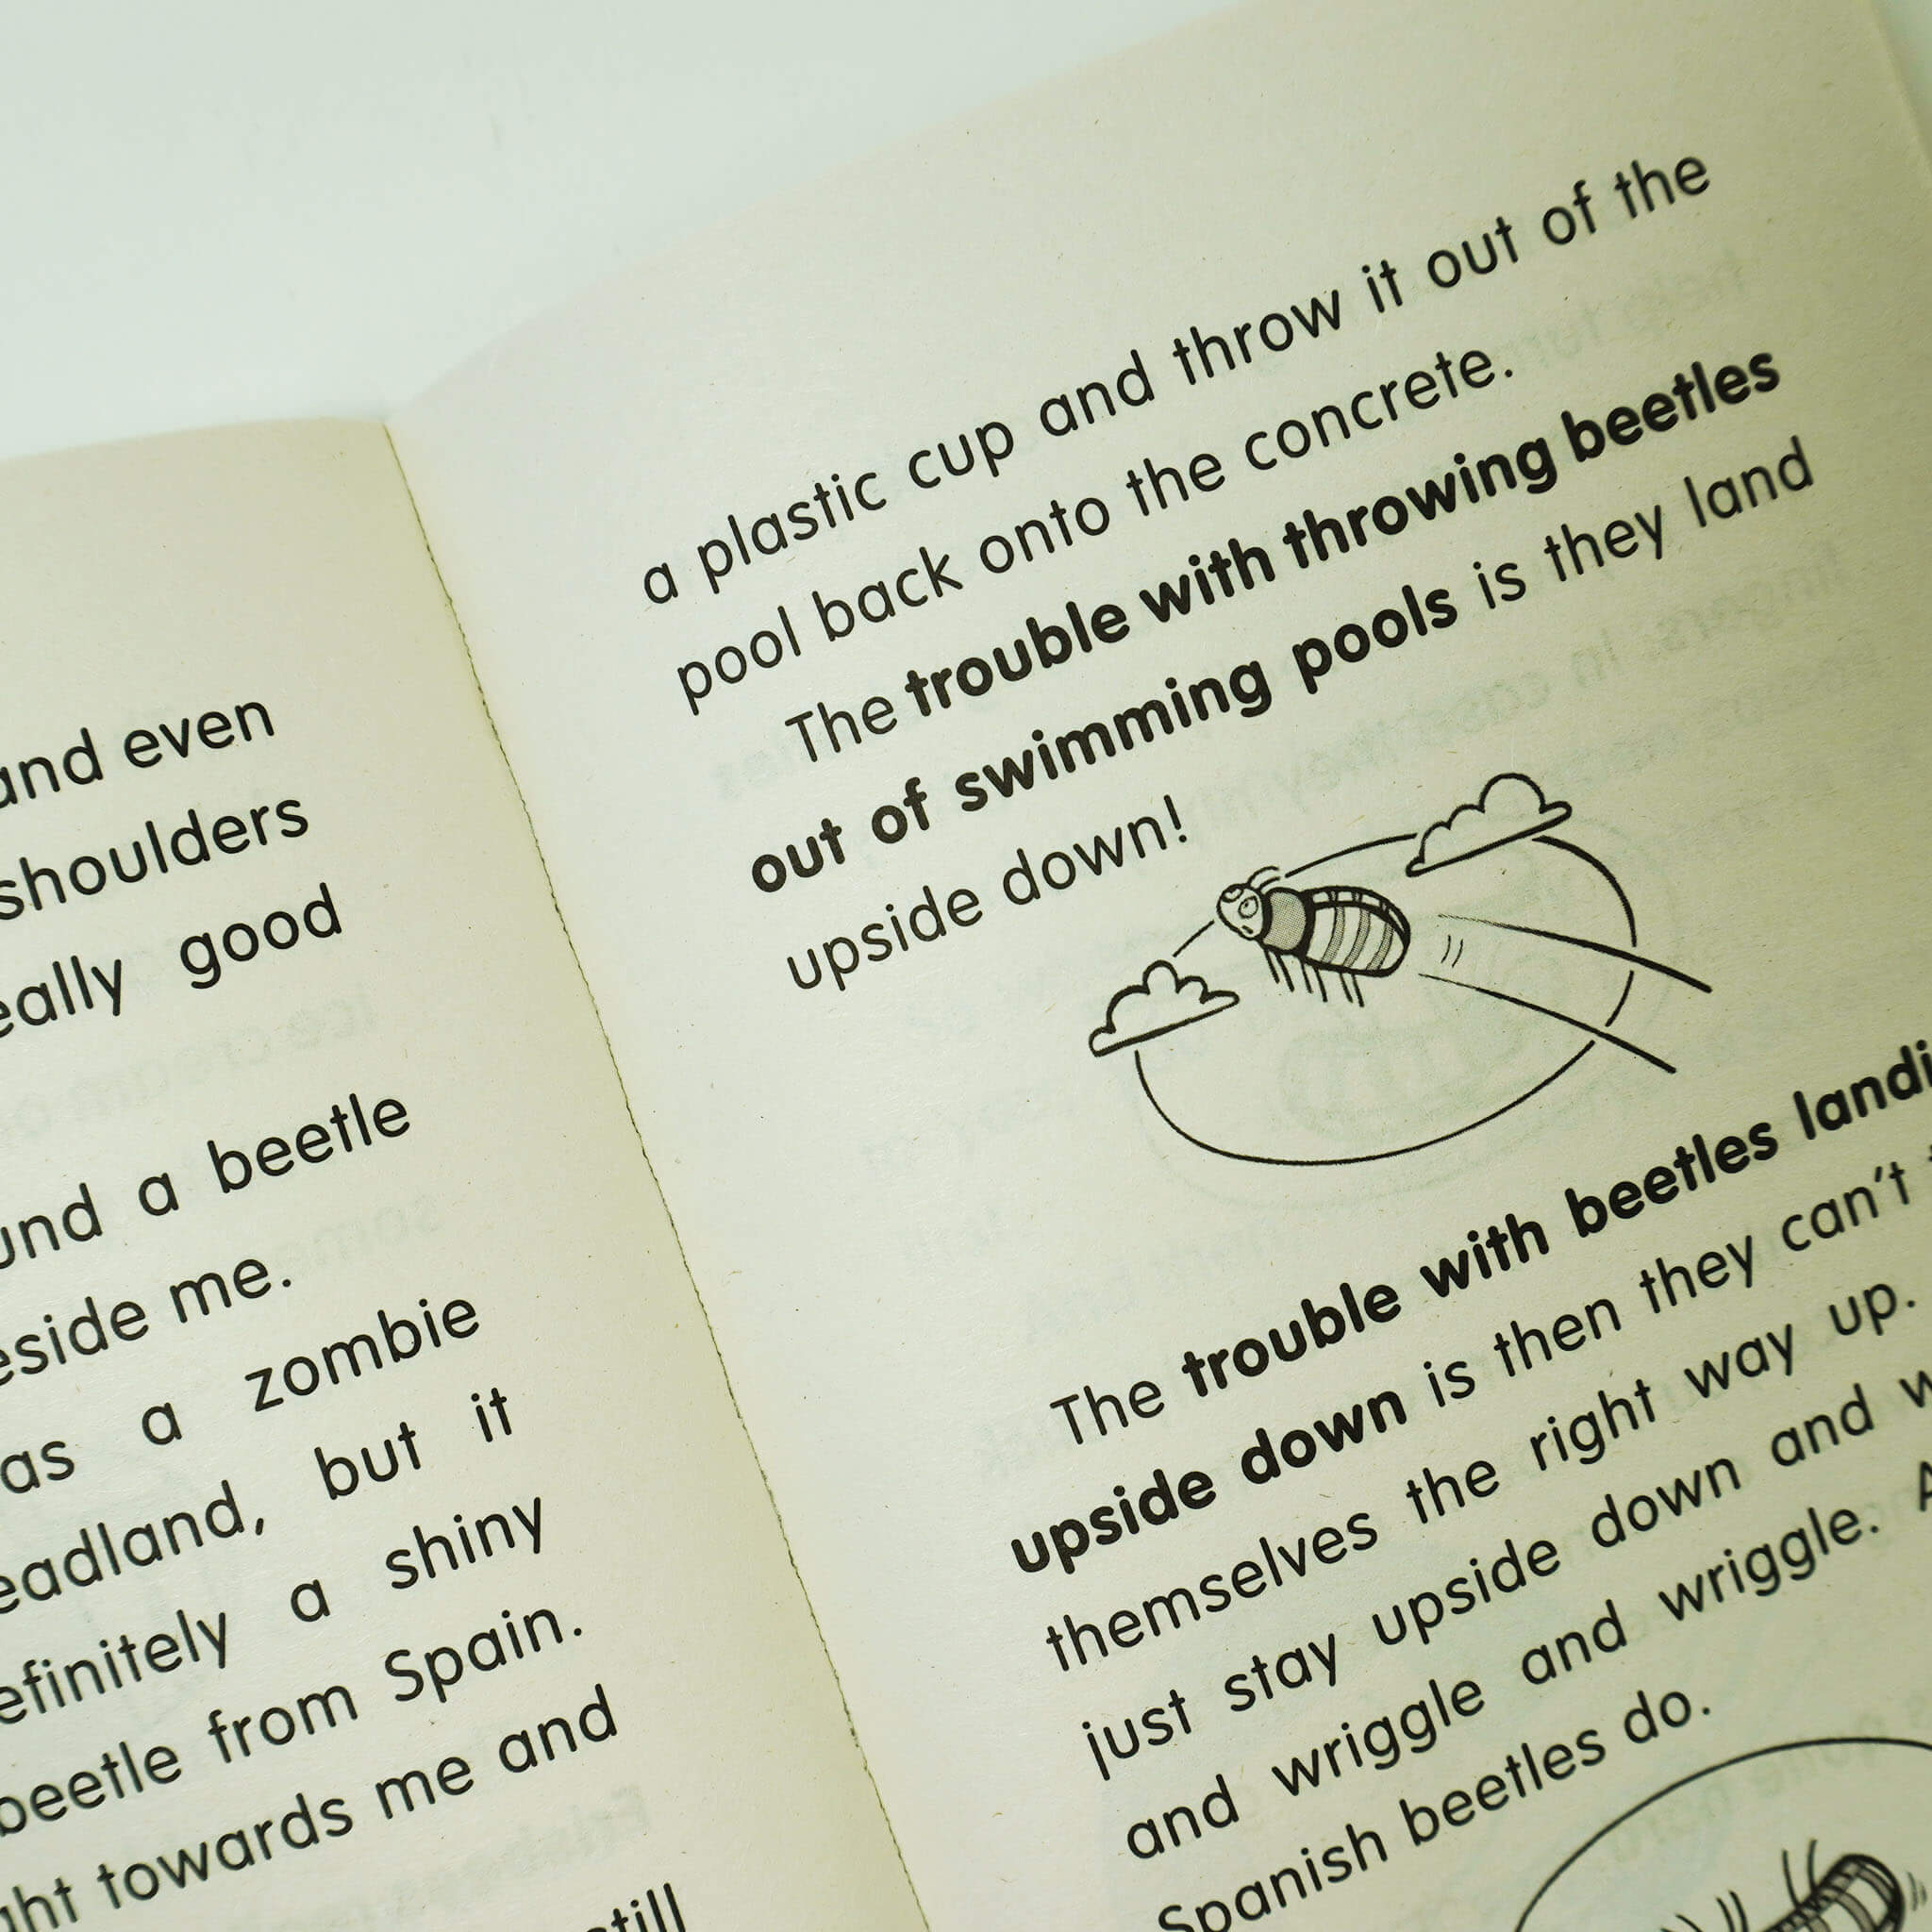 and even
shoulders
good
a beetle
me.
as a zombie
but it
a shiny
beetle from Spain.
towards me and
still
a plastic cup and throw it out of the
pool back onto the concrete.
The trouble with throwing beetles
out of swimming pools is they land
upside down!
The trouble with beetles
upside down is then they can't
themselves the right way up.
just stay upside down and
and wriggle and wriggle.
Spanish beetles do.